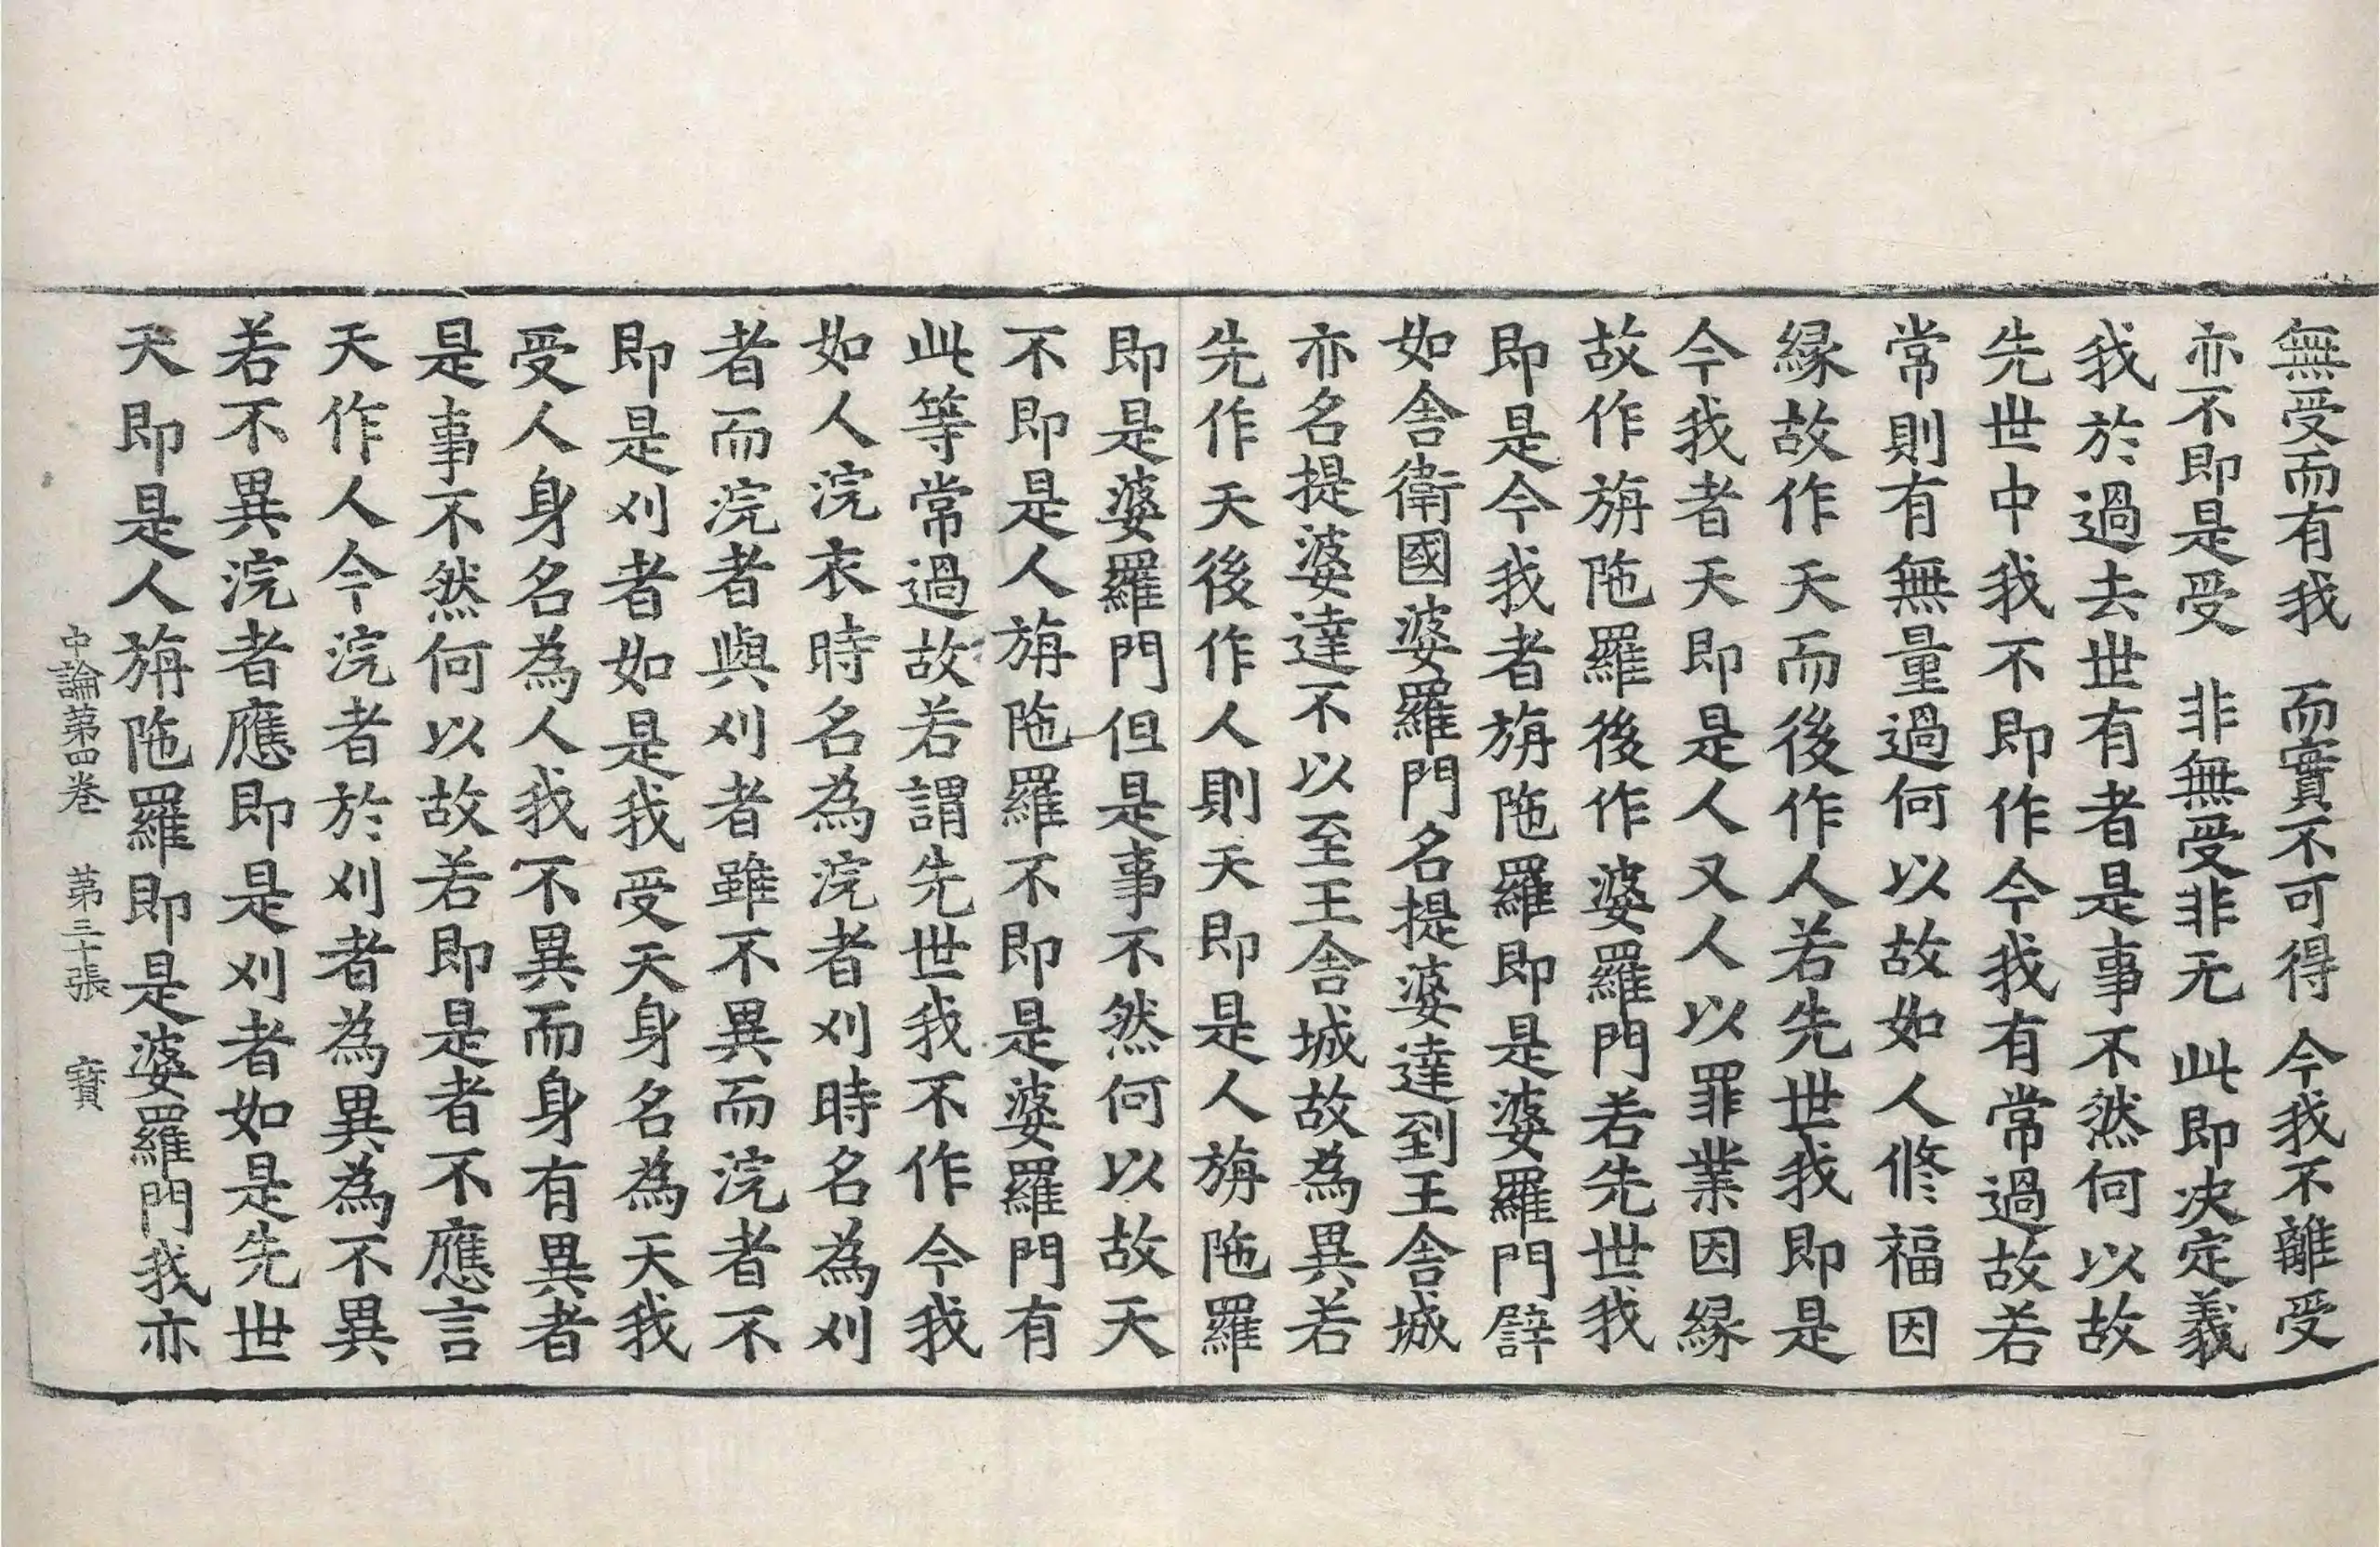 無受而有我　而實不可得　今我不離受
亦不即是受　非無受非无　此即決定義
我於過去世有者是事不然何以故
先世中我不即作今我有常過故若
常則有無量過何以故如人修福因
緣故作天而後作人若先世我即是
今我者天即是人又人以罪業因緣
故作旃陁羅後作婆羅門若先世我
即是今我者旃陁羅即是婆羅門譬
如舍衛國婆羅門名提婆達到王舍城
亦名提婆達不以至王舍城故為異若
先作天後作人則天即是人旃陁羅
即是婆羅門但是事不然何以故天
不即是人旃陁羅不即是婆羅門有
此等常過故若謂先世我不作今我
如人浣衣時名為浣者刈時名為刈
者而浣者與刈者雖不異而浣者不
即是刈者如是我受天身名為天我
受人身名為人我不異而身有異者
是事不然何以故若即是者不應言
天作人今浣者於刈者為異為不異
若不異浣者應即是刈者如是先世
天即是人旃陁羅即是婆羅門我亦
中論第四卷　第三十張　寶